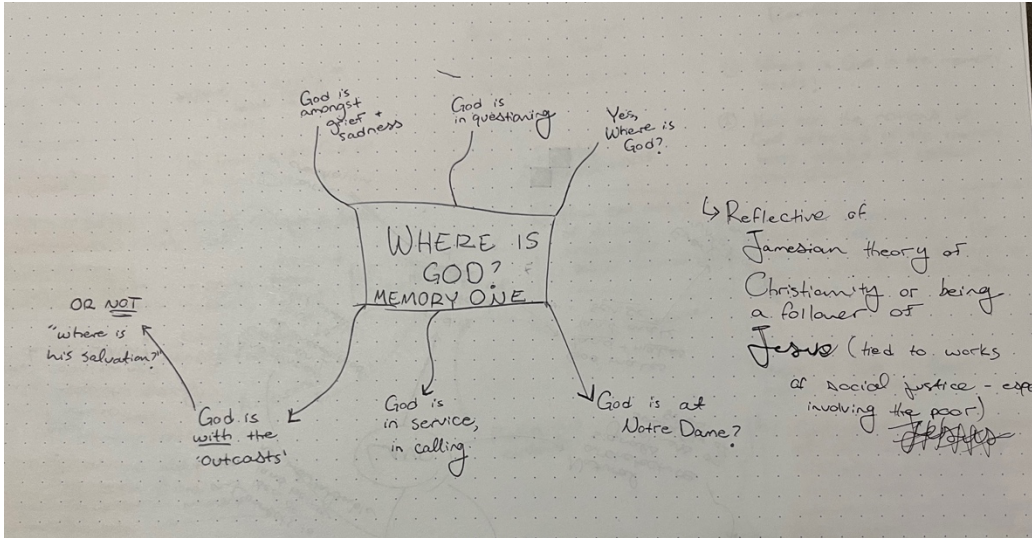 God is
amongst
grief +
sadness
God is
in questioning
Yes,
Where is
God?
WHERE IS
GOD?
MEMORY ONE
OR NOT
"where is
his salvation?"
God is
with the
'outcasts'
God is
in service,
in calling
God is at
Notre Dame?
↳ Reflective of
Jamesian theory of
Christianity or being
a follower of
Jesus (tied to works
of social justice - espe
involving the poor)